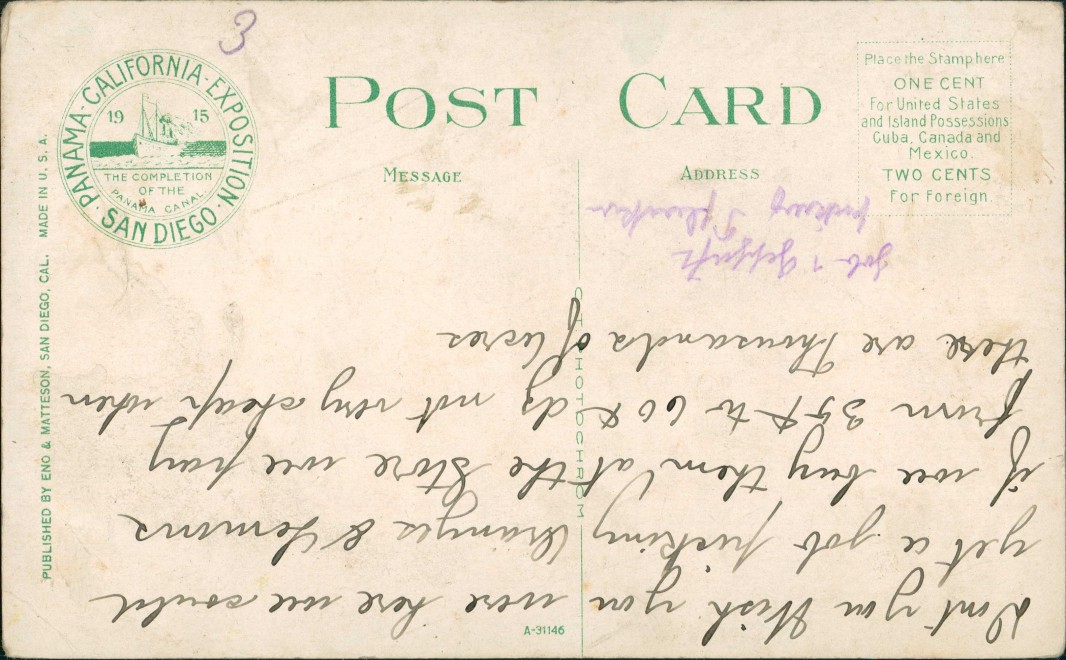 3
PANAMA-CALIFORNIA-EXPOSITION
SAN DIEGO
1915
THE COMPLETION
OF THE
PANAMA CANAL.
POST CARD
MESSAGE
ADDRESS
Place the Stamp here
ONE CENT
For United States
and Island Possessions
Cuba, Canada and
Mexico.
TWO CENTS
For Foreign.
PUBLISHED BY ENO & MATTESON, SAN DIEGO, CAL. MADE IN U. S. A.
A-31146
Dont you Wish you were here we could
get a job picking Oranges & Lemons
if we buy them at the Store we pay
from 35¢ to 60¢ dz not very cheap when
there are Thousands of acres
job